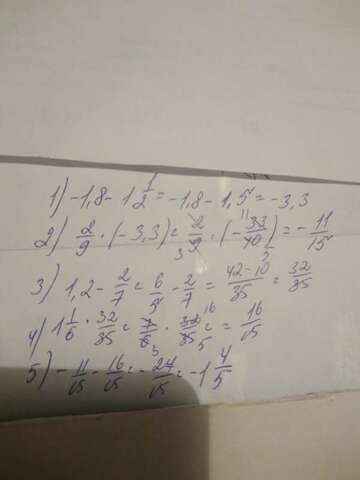 1) -1,8 - 1 1/2 = -1,8 - 1,5 = -3,3
2) 2/9 · (-3,3) = 2/9 · (-33/10) = -11/15
3) 1,2 - 2/7 = 6/5 - 2/7 = 42-10/35 = 32/35
4) 1 1/6 · 32/35 = 7/6 · 32/35 = 16/15
5) -11/15 - 16/15 = -27/15 = -1 4/5